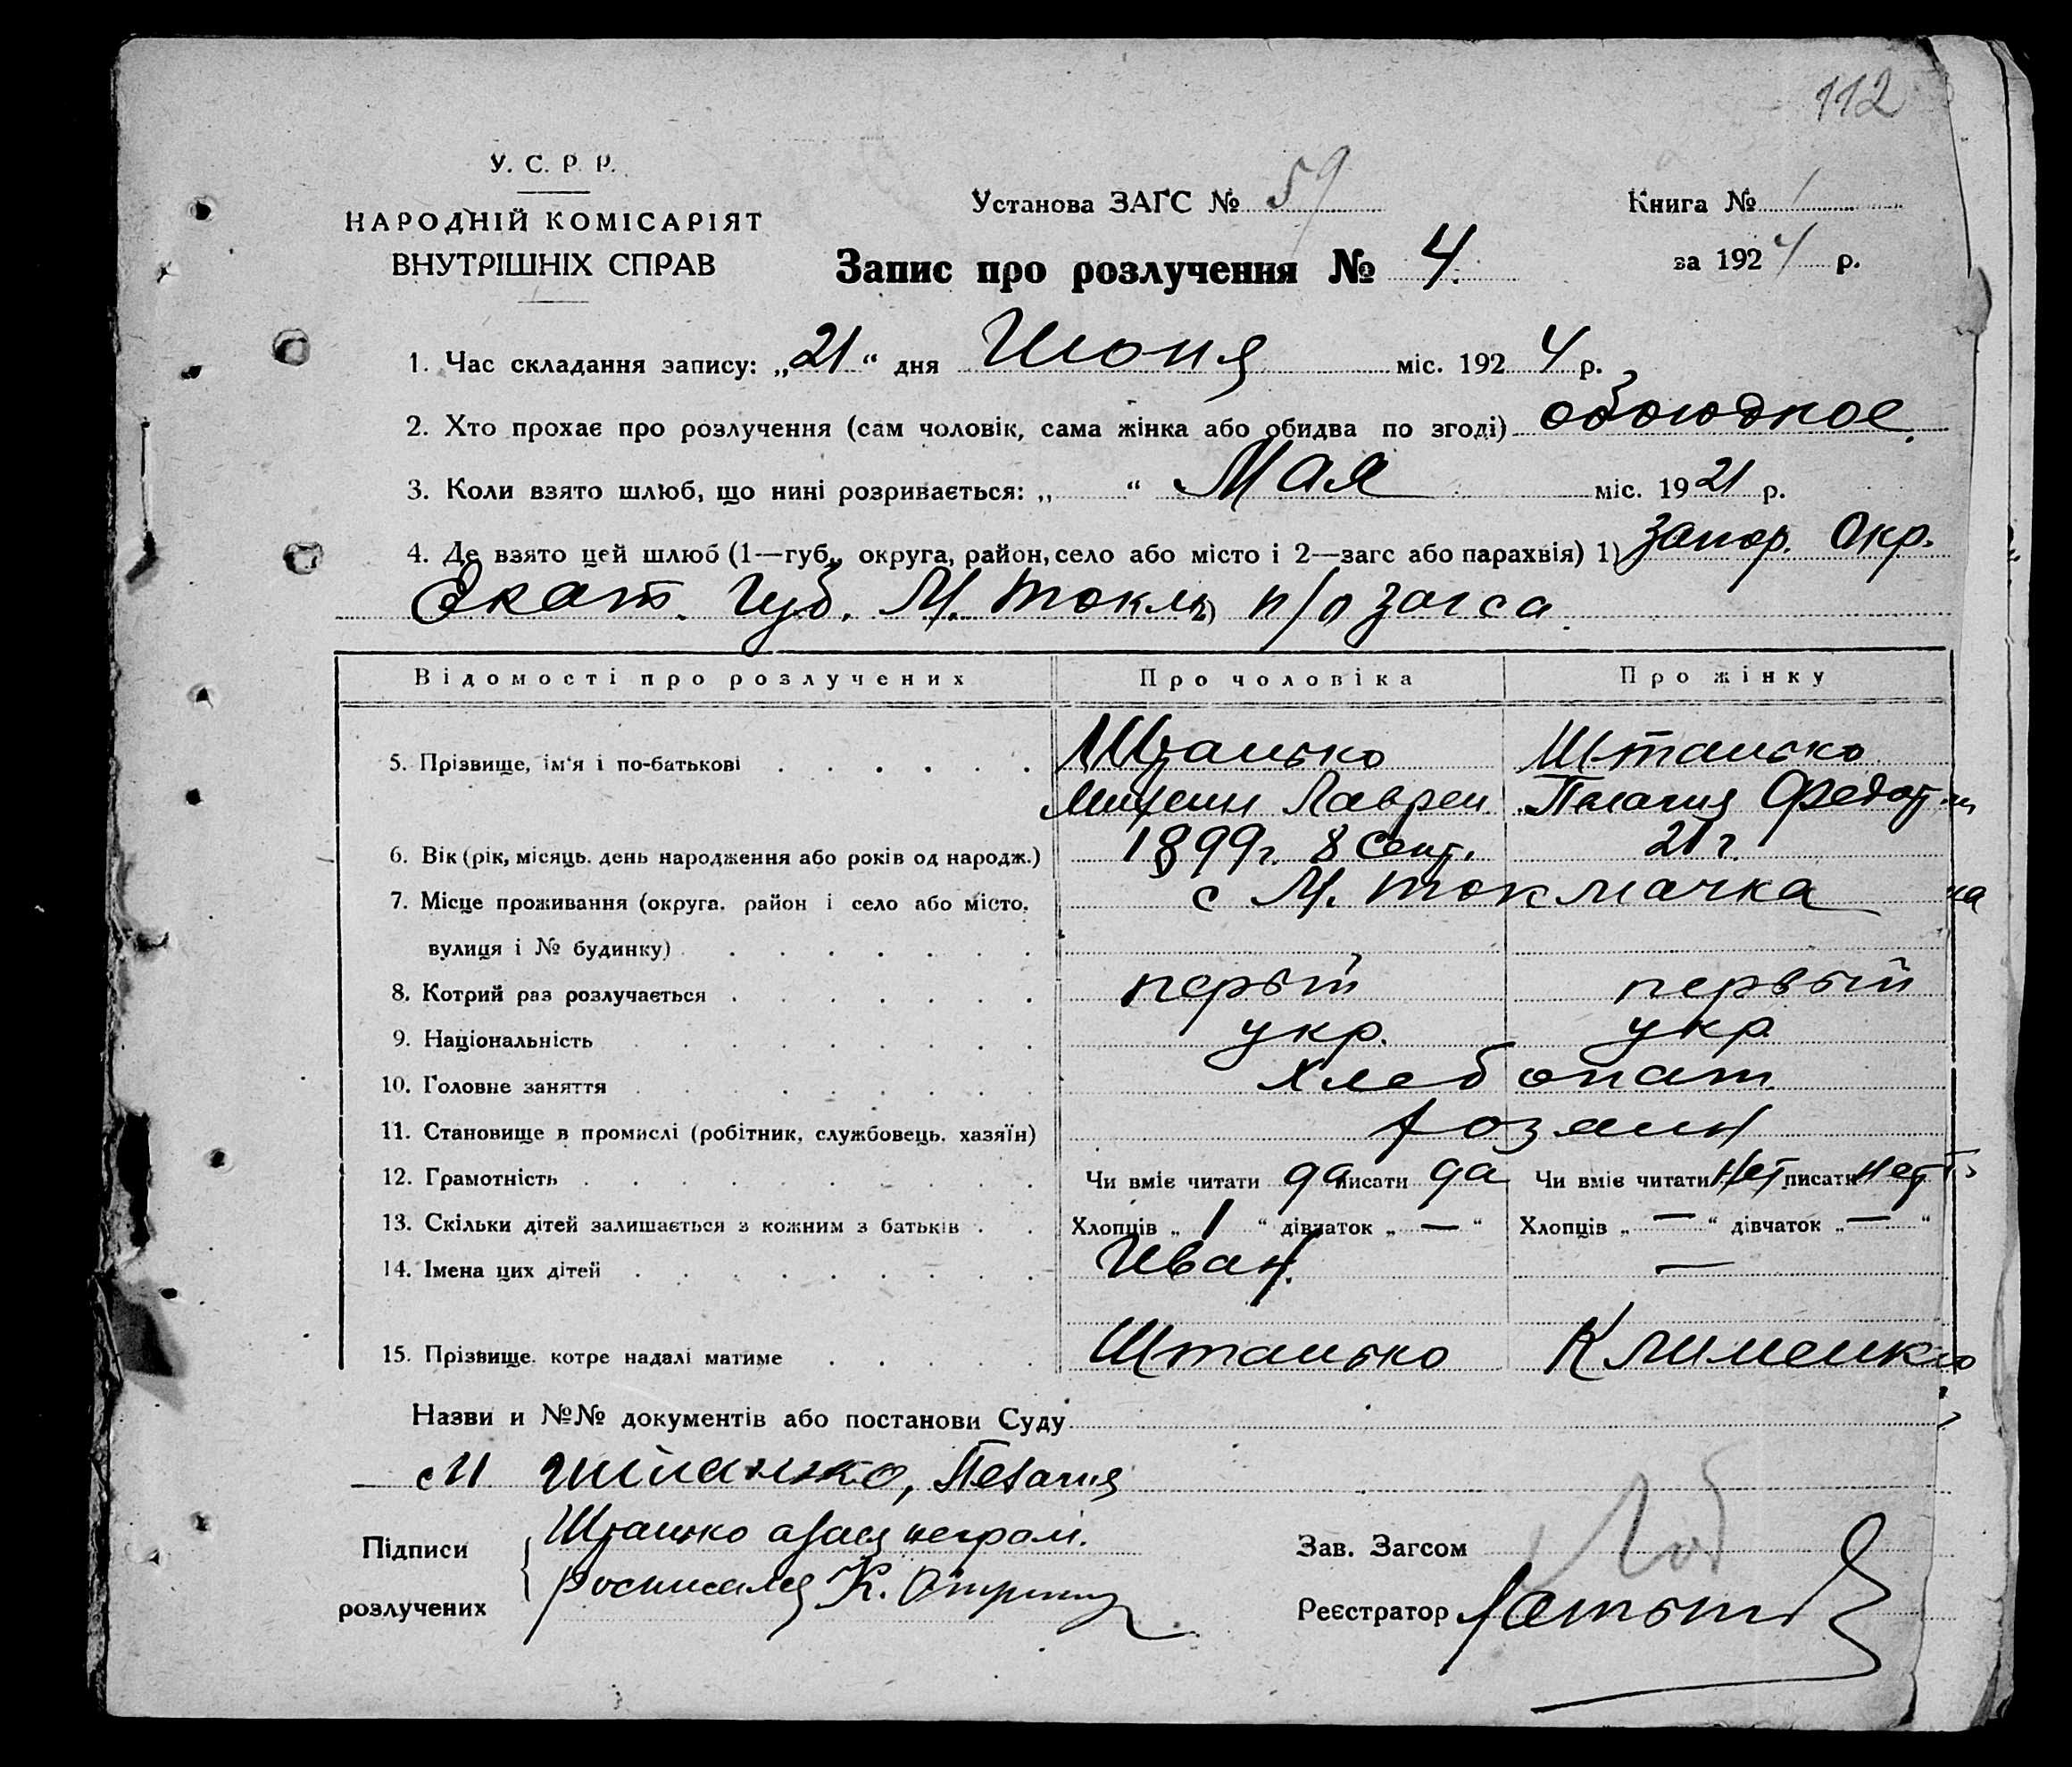 112
У. С. Р. Р.
НАРОДНІЙ КОМІСАРІЯТ
ВНУТРІШНІХ СПРАВ
Установа ЗАГС № 59
Книга № 1
Запис про розлучення № 4.
за 1924 р.
1. Час складання запису: „21“ дня Июня міс. 1924 р.
2. Хто прохає про розлучення (сам чоловік, сама жінка або обидва по згоді) обоюдное.
3. Коли взято шлюб, що нині розривається: „ “ Мая міс. 1921 р.
4. Де взято цей шлюб (1—губ., округа, район, село або місто і 2—загс або парахвія) 1) Запор. Окр.
Екат. Губ. М. Токм 2) п/о загса
Відомості про розлучених Про чоловіка Про жінку
5. Прізвище, ім'я і по-батькові Штанько Штанько
Лаврен Пелагия Федот
6. Вік (рік, місяць, день народження або років од народж.) 1899 г. 8 Сент. 21 г.
7. Місце проживання (округа, район і село або місто, с М. Токмачка
вулиця і № будинку)
8. Котрий раз розлучається первый первый
9. Національність укр. укр
10. Головне заняття Хлебопаш
11. Становище в промислі (робітник, службовець, хазяїн) хозяин
12. Грамотність Чи вміє читати да писати да Чи вміє читати нет писати нет
13. Скільки дітей залишається з кожним з батьків Хлопців „ 1 “ дівчаток „ — “ Хлопців „ — “ дівчаток „ — “
14. Імена цих дітей Иван. —
15. Прізвище, котре надалі матиме Штанько Клименко
Назви и №№ документів або постанови Суду
Штанько, Пелагия
Підписи Штанько а за нея неграм.
розлучених росписался К.
Зав. Загсом
Реєстратор